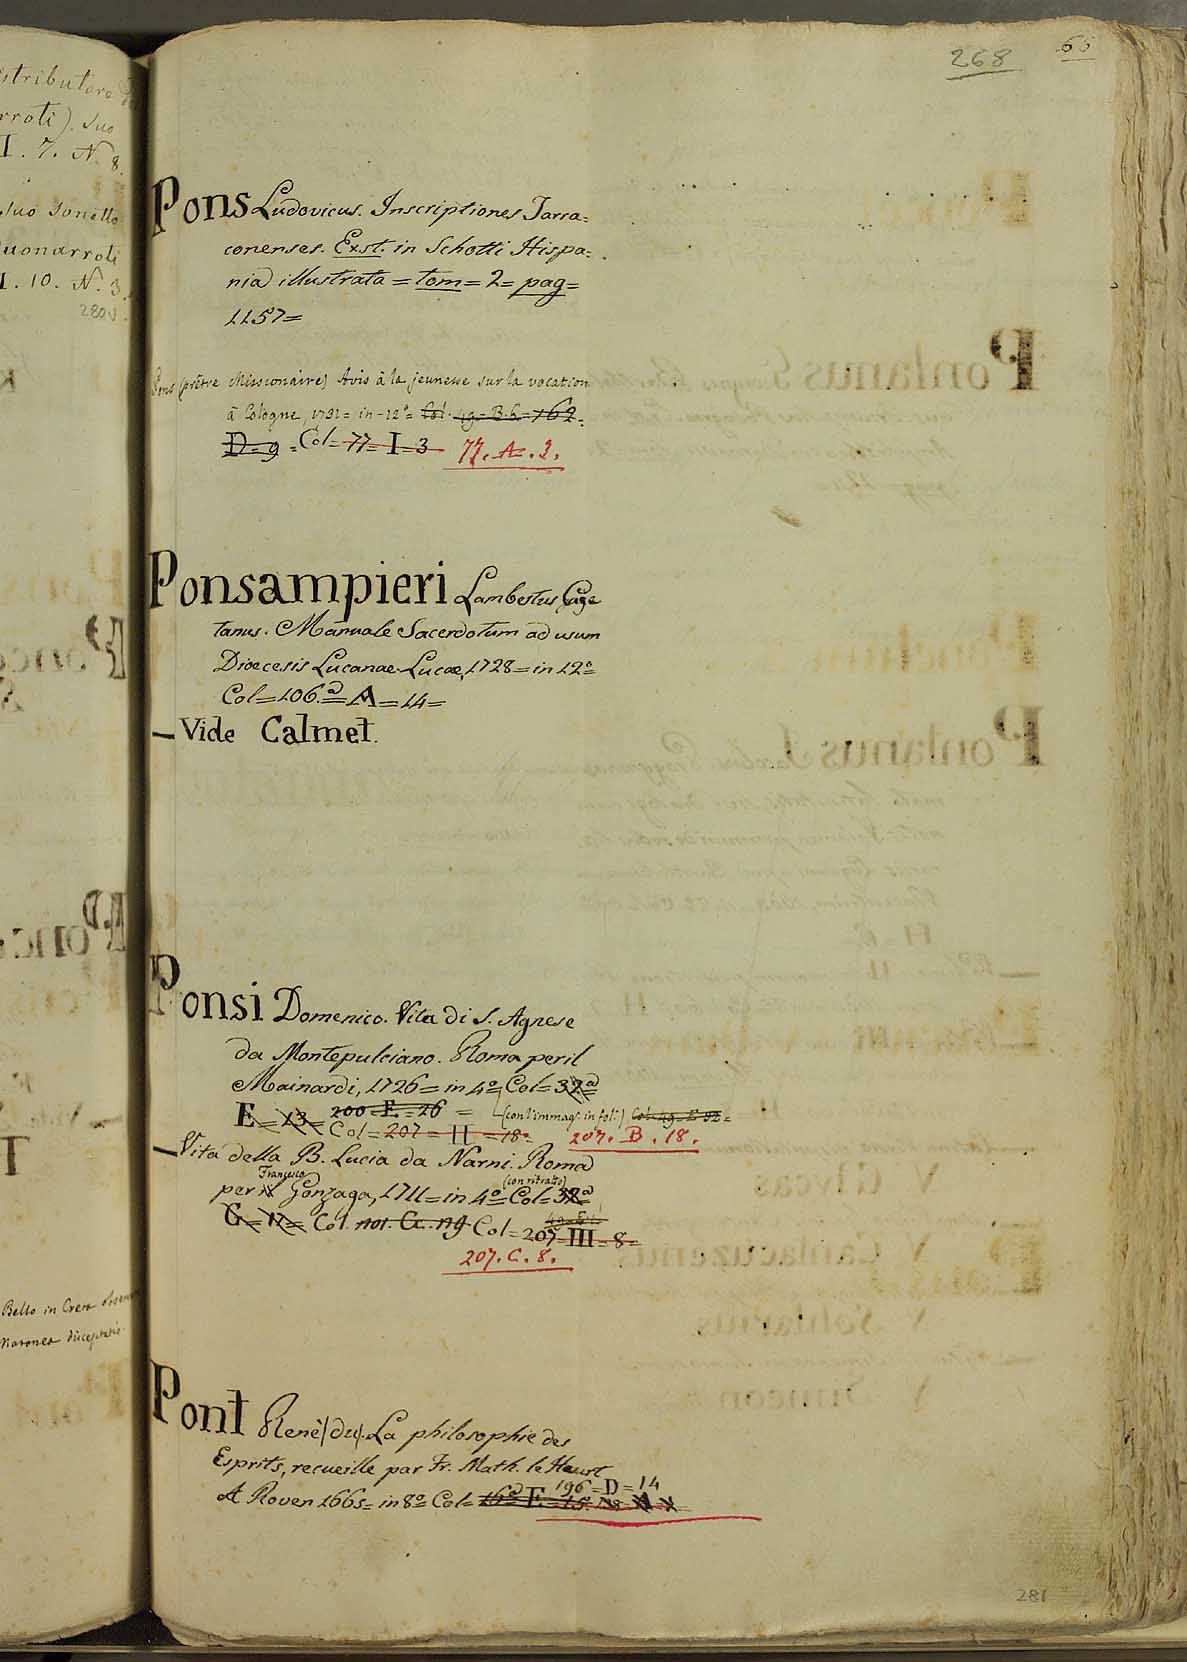 268 65
Pons Ludovicus. Inscriptiones Tarra=
conenses. Exst. in Schotti Hispa=
nia illustrata = tom = 2 = pag =
1157=
Pons (prêtre Missionaire) Avis à la jeunesse sur la vocation
à Cologne, 1791 = in-12° = Col. 49 = B.h. = 162 =
D = 9 = Col = 77 = I = 3 77. A. 3.
Ponsampieri Lambertus Caje
tanus. Manuale Sacerdotum ad usum
Dioecesis Lucanae. Lucae, 1728 = in 12°=
Col = 106.a = A = 14 =
— Vide Calmet.
Ponsi Domenico. Vita di S. Agnese
da Montepulciano. Roma per il
Mainardi, 1726 = in 4° Col = 32a
E = 13 = 200 = E. = 26 = (con l'immag. in fol.)
Col = 207 = II = 18 = 207. B. 18.
— Vita della B. Lucia da Narni. Roma
Francesco (con ritratto)
per Gonzaga, 1711 = in 4° Col = 32a
G = 17 = Col Col = 207 = III = 8 =
207. C. 8.
Pont René (du). La philosophie des
Esprits, recueille par Fr. Math. le Heurt
196 = D = 14
A Roven 1665 = in 8° Col = 16a F. = 15.
281
istributore
rroti). Suo
I. 7. N. 8.
Suo Sonetto
uonarroti
I. 10. N. 3.
280v.
Bello in Creta